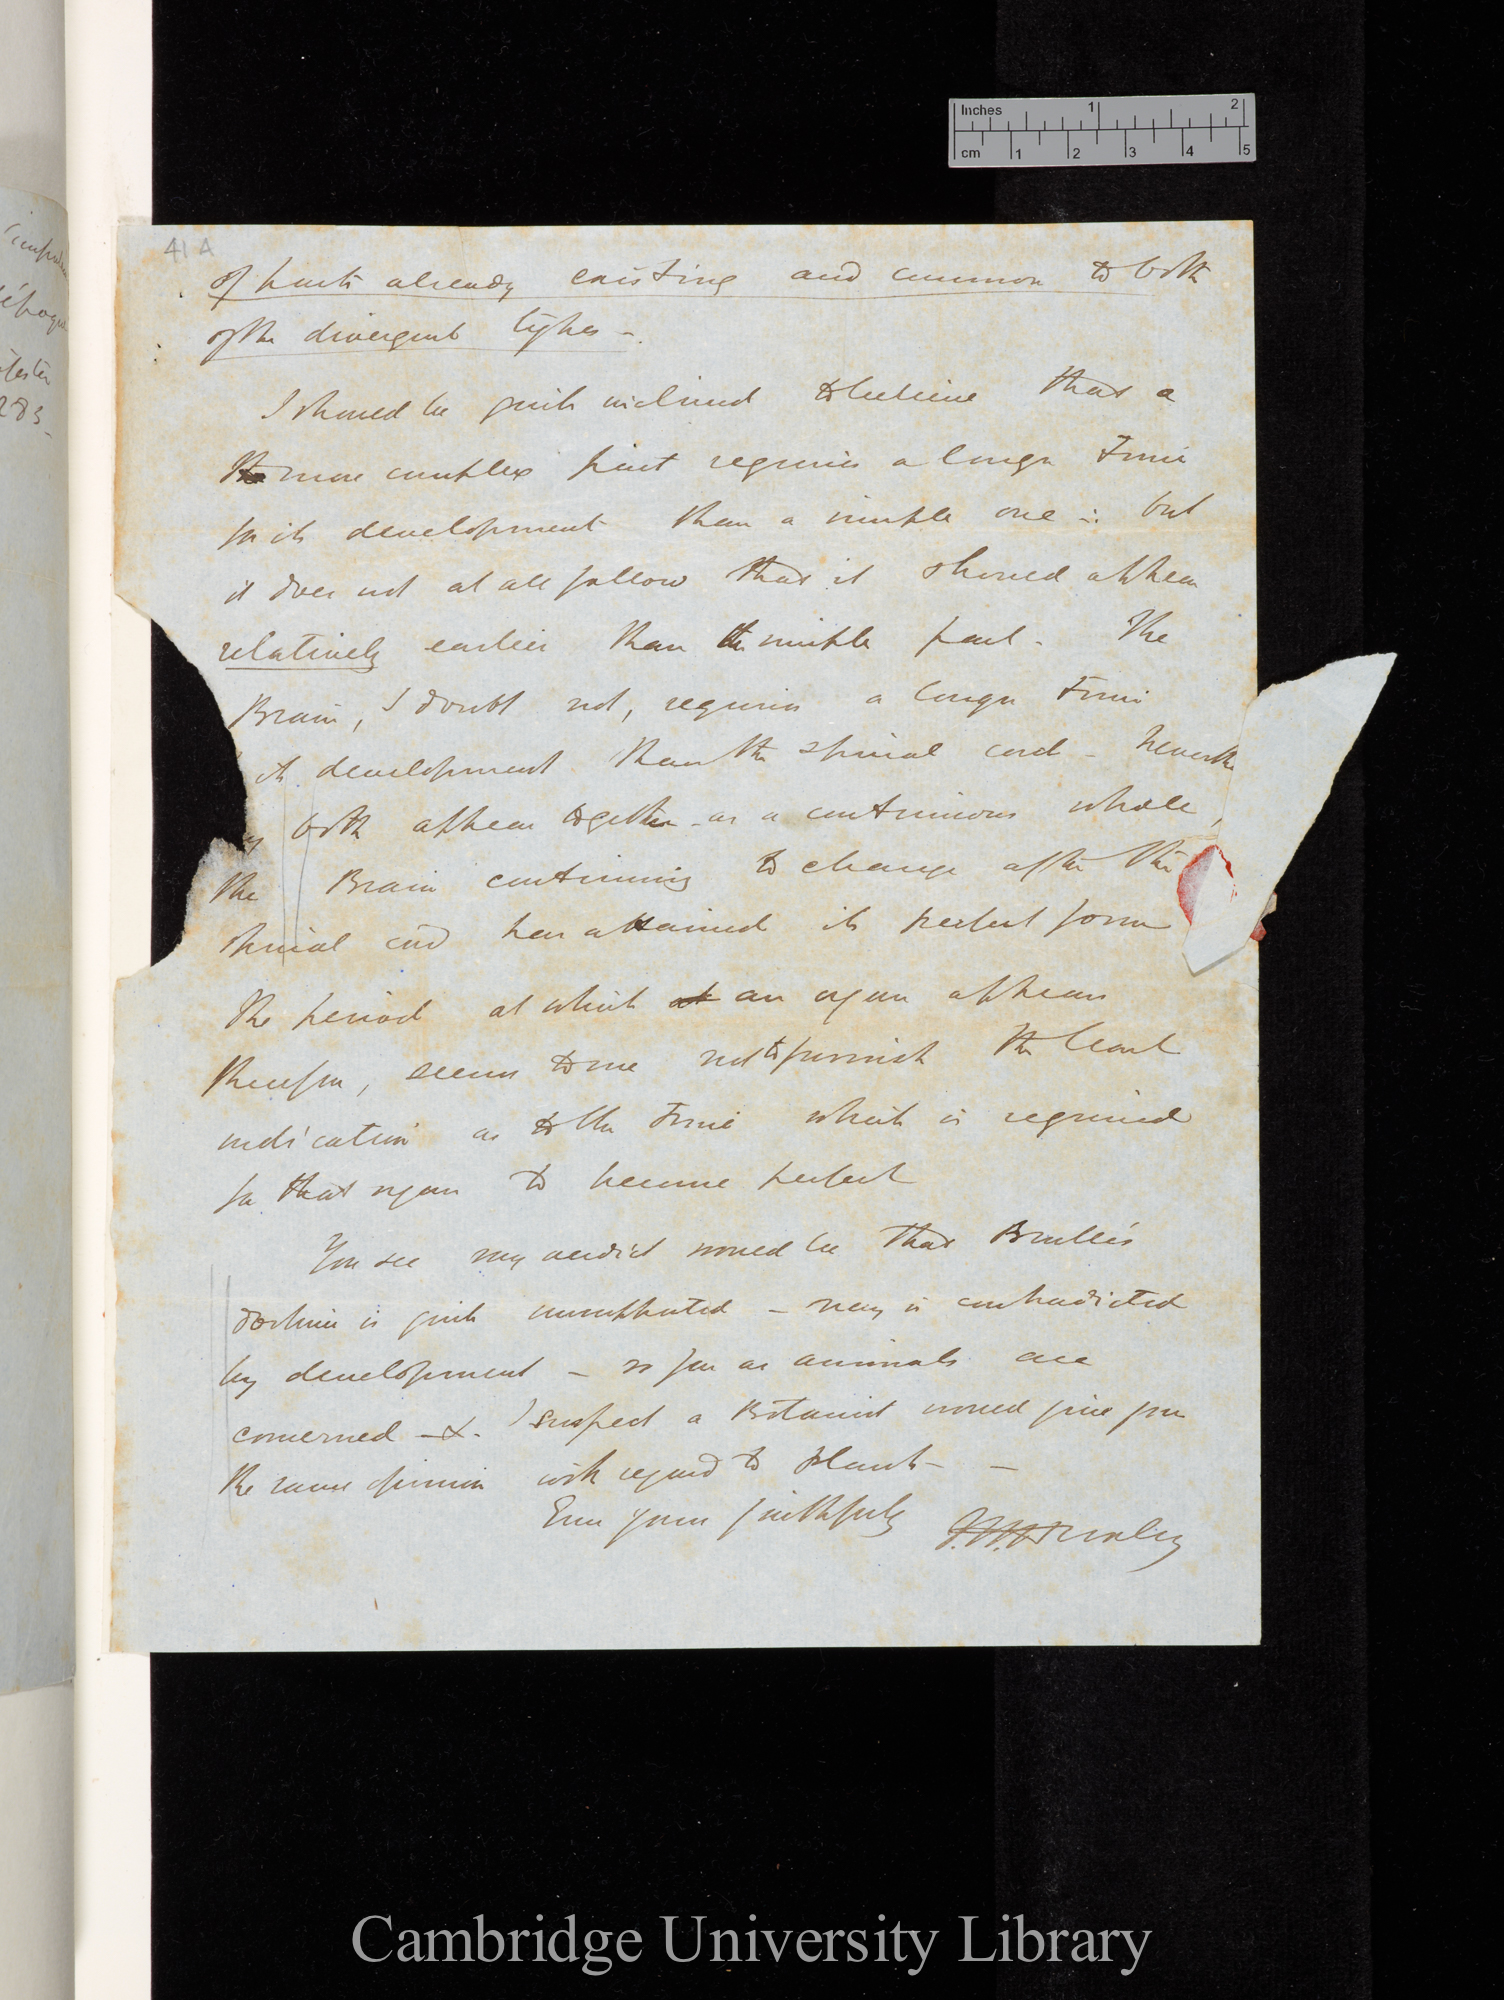 Inches 1 2
cm 1 2 3 4 5
41 A
of parts already existing and common to both
of the divergent types –.
I should be quite inclined to believe that a
more complex part requires a longer time
for its development than a simple one –: but
it does not at all follow that it should appear
relatively earlier than the simple part – The
Brain, I doubt not, requires a longer time
its development than the spinal cord – Neverthe
both appear together as a continuous whole,
the Brain continuing to change after the
spinal cord has attained its perfect form
The period at which at an organ appears
therefore, seems to me not to furnish the least
indication as to the time which is required
for that organ to become perfect
You see my verdict would be that Brullé's
doctrine is quite unsupported – nay is contradicted
by development – so far as animals are
concerned – & – I suspect a Botanist would give you
the same opinion with regard to plants – –
Ever yours faithfully T. H. Huxley
283 –
Cambridge University Library